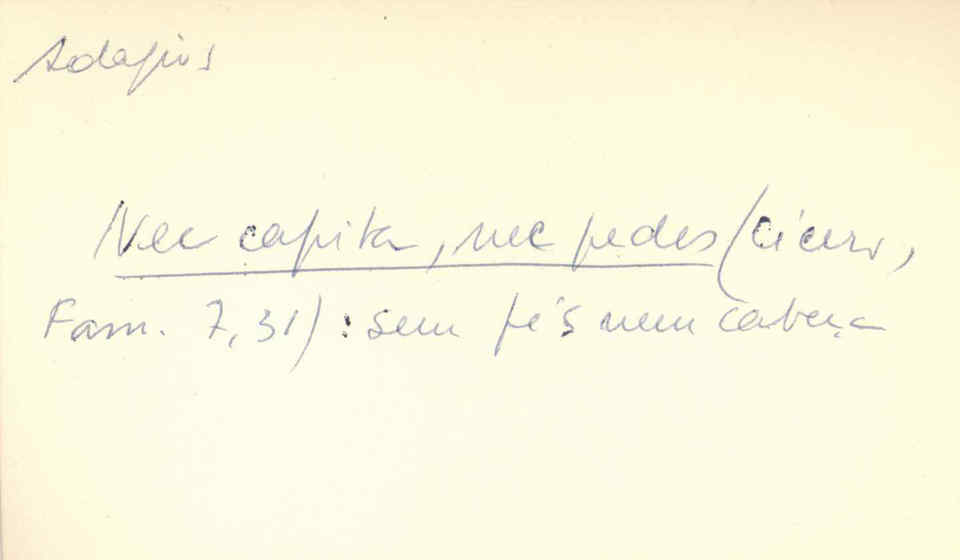 Adagios
Nec capita, nec pedes (Cícero,
Fam. 7,31): sem pés nem cabeça